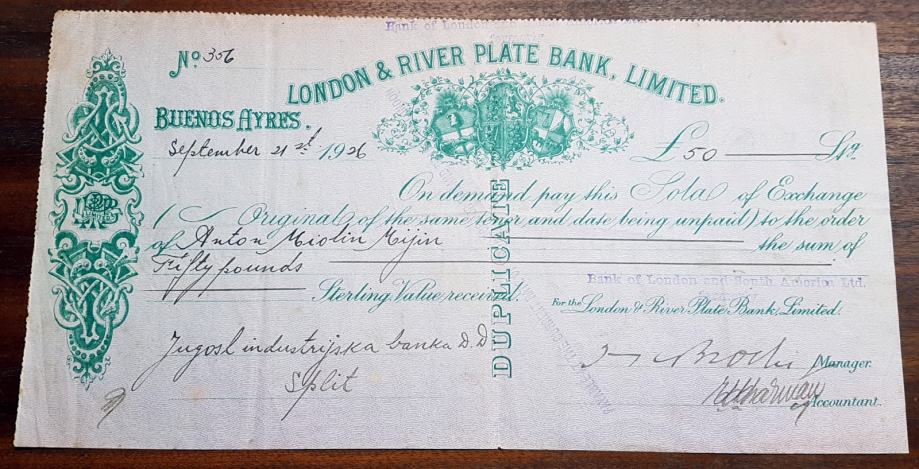 Bank of London and
No 356
LONDON & RIVER PLATE BANK, LIMITED.
BUENOS AYRES.
September 21st 1926
£50 Stg
On demand pay this Sola of Exchange
(Original of the same tenor and date being unpaid) to the order
of Anton Miolin Mijin the sum of
Fifty pounds
Sterling Value received.
DUPLICATE
Bank of London and South America Ltd.
For the London & River Plate Bank, Limited.
Jugosl industrijska banka d.d
Split
Manager.
Accountant.